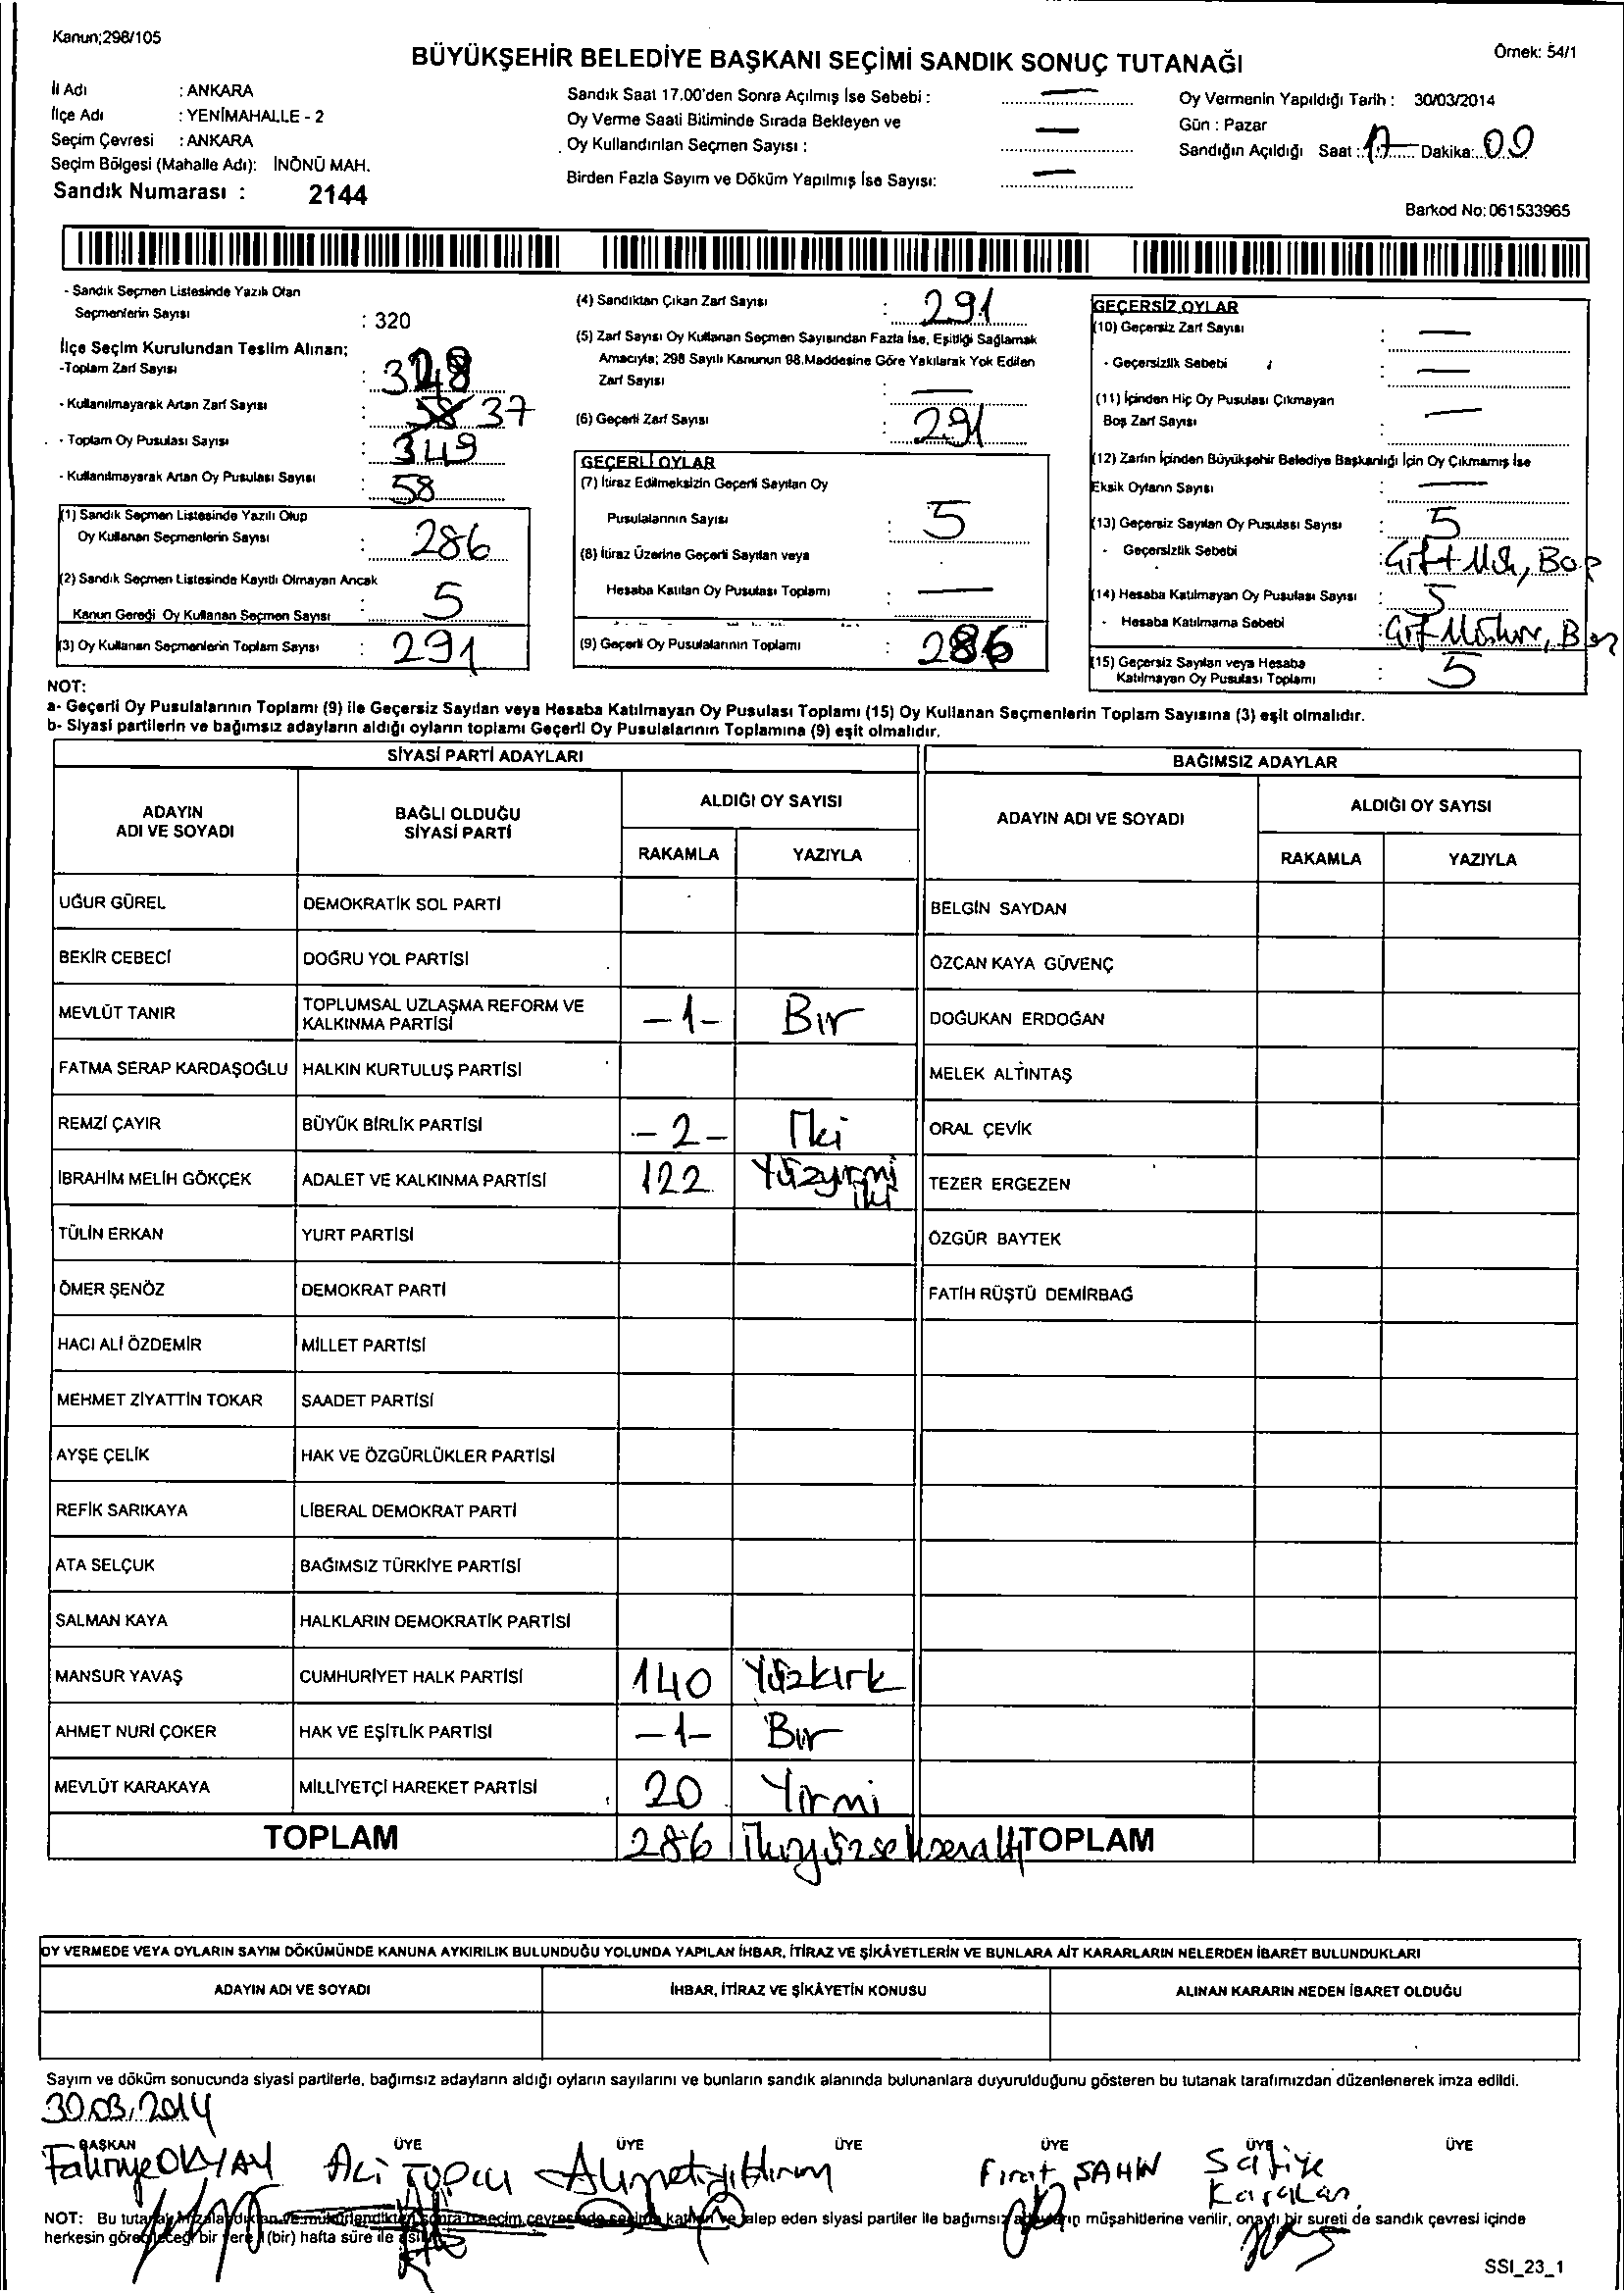 Kanun;298/105
BÜYÜKŞEHİR BELEDİYE BAŞKANI SEÇİMİ SANDIK SONUÇ TUTANAĞI
Örnek: 54/1
İl Adı : ANKARA
İlçe Adı : YENİMAHALLE - 2
Seçim Çevresi : ANKARA
Seçim Bölgesi (Mahalle Adı): İNÖNÜ MAH.
Sandık Numarası : 2144
Sandık Saat 17.00'den Sonra Açılmış İse Sebebi : —
Oy Verme Saati Bitiminde Sırada Bekleyen ve
Oy Kullandırılan Seçmen Sayısı : —
Birden Fazla Sayım ve Döküm Yapılmış İse Sayısı: —
Oy Vermenin Yapıldığı Tarih : 30/03/2014
Gün : Pazar
Sandığın Açıldığı Saat : 17 Dakika: 00
Barkod No: 061533965
- Sandık Seçmen Listesinde Yazılı Olan
Seçmenlerin Sayısı : 320
İlçe Seçim Kurulundan Teslim Alınan;
-Toplam Zarf Sayısı : 328
- Kullanılmayarak Artan Zarf Sayısı : 37
- Toplam Oy Pusulası Sayısı : 349
- Kullanılmayarak Artan Oy Pusulası Sayısı : 58
(1) Sandık Seçmen Listesinde Yazılı Olup
Oy Kullanan Seçmenlerin Sayısı : 286
(2) Sandık Seçmen Listesinde Kayıtlı Olmayan Ancak
Kanun Gereği Oy Kullanan Seçmen Sayısı : 5
(3) Oy Kullanan Seçmenlerin Toplam Sayısı : 291
(4) Sandıktan Çıkan Zarf Sayısı : 291
(5) Zarf Sayısı Oy Kullanan Seçmen Sayısından Fazla İse, Eşitliği Sağlamak
Amacıyla; 298 Sayılı Kanunun 98.Maddesine Göre Yakılarak Yok Edilen
Zarf Sayısı : —
(6) Geçerli Zarf Sayısı : 291
GEÇERLİ OYLAR
(7) İtiraz Edilmeksizin Geçerli Sayılan Oy
Pusulalarının Sayısı : 5
(8) İtiraz Üzerine Geçerli Sayılan veya
Hesaba Katılan Oy Pusulası Toplamı : —
(9) Geçerli Oy Pusulalarının Toplamı : 286
GEÇERSİZ OYLAR
(10) Geçersiz Zarf Sayısı : —
- Geçersizlik Sebebi : —
(11) İçinden Hiç Oy Pusulası Çıkmayan
Boş Zarf Sayısı : —
(12) Zarfın İçinden Büyükşehir Belediye Başkanlığı İçin Oy Çıkmamış İse
Eksik Oyların Sayısı : —
(13) Geçersiz Sayılan Oy Pusulası Sayısı : 5
- Geçersizlik Sebebi :
(14) Hesaba Katılmayan Oy Pusulası Sayısı : 5
- Hesaba Katılmama Sebebi :
(15) Geçersiz Sayılan veya Hesaba
Katılmayan Oy Pusulası Toplamı : 5
NOT:
a- Geçerli Oy Pusulalarının Toplamı (9) ile Geçersiz Sayılan veya Hesaba Katılmayan Oy Pusulası Toplamı (15) Oy Kullanan Seçmenlerin Toplam Sayısına (3) eşit olmalıdır.
b- Siyasi partilerin ve bağımsız adayların aldığı oyların toplamı Geçerli Oy Pusulalarının Toplamına (9) eşit olmalıdır.
SİYASİ PARTİ ADAYLARI
BAĞIMSIZ ADAYLAR
ADAYIN ADI VE SOYADI
BAĞLI OLDUĞU SİYASİ PARTİ
ALDIĞI OY SAYISI
RAKAMLA YAZIYLA
ADAYIN ADI VE SOYADI
ALDIĞI OY SAYISI
RAKAMLA YAZIYLA
UĞUR GÜREL DEMOKRATİK SOL PARTİ BELGİN SAYDAN
BEKİR CEBECİ DOĞRU YOL PARTİSİ ÖZCAN KAYA GÜVENÇ
MEVLÜT TANIR TOPLUMSAL UZLAŞMA REFORM VE KALKINMA PARTİSİ -1- Bir DOĞUKAN ERDOĞAN
FATMA SERAP KARDAŞOĞLU HALKIN KURTULUŞ PARTİSİ MELEK ALTINTAŞ
REMZİ ÇAYIR BÜYÜK BİRLİK PARTİSİ -2- İki ORAL ÇEVİK
İBRAHİM MELİH GÖKÇEK ADALET VE KALKINMA PARTİSİ 122 Yüzyirmi iki TEZER ERGEZEN
TÜLİN ERKAN YURT PARTİSİ ÖZGÜR BAYTEK
ÖMER ŞENÖZ DEMOKRAT PARTİ FATİH RÜŞTÜ DEMİRBAĞ
HACI ALİ ÖZDEMİR MİLLET PARTİSİ
MEHMET ZİYATTİN TOKAR SAADET PARTİSİ
AYŞE ÇELİK HAK VE ÖZGÜRLÜKLER PARTİSİ
REFİK SARIKAYA LİBERAL DEMOKRAT PARTİ
ATA SELÇUK BAĞIMSIZ TÜRKİYE PARTİSİ
SALMAN KAYA HALKLARIN DEMOKRATİK PARTİSİ
MANSUR YAVAŞ CUMHURİYET HALK PARTİSİ 140 Yüzkırk
AHMET NURİ ÇOKER HAK VE EŞİTLİK PARTİSİ -1- Bir
MEVLÜT KARAKAYA MİLLİYETÇİ HAREKET PARTİSİ 20 Yirmi
TOPLAM 286 İkiyüzseksenaltı TOPLAM
OY VERMEDE VEYA OYLARIN SAYIM DÖKÜMÜNDE KANUNA AYKIRILIK BULUNDUĞU YOLUNDA YAPILAN İHBAR, İTİRAZ VE ŞİKÂYETLERİN VE BUNLARA AİT KARARLARIN NELERDEN İBARET BULUNDUKLARI
ADAYIN ADI VE SOYADI İHBAR, İTİRAZ VE ŞİKÂYETİN KONUSU ALINAN KARARIN NEDEN İBARET OLDUĞU
Sayım ve döküm sonucunda siyasi partilerle, bağımsız adayların aldığı oyların sayılarını ve bunların sandık alanında bulunanlara duyurulduğunu gösteren bu tutanak tarafımızdan düzenlenerek imza edildi.
30.03.2014
BAŞKAN ÜYE ÜYE ÜYE ÜYE ÜYE ÜYE
Fahriye OKYAY Ali TOPCU Ahmet Yıldırım Fırat ŞAHİN Safiye
Karaları
NOT: Bu tutanak imzalandıktan ve mühürlendikten sonra seçim çevresinde seçime katılan ve talep eden siyasi partiler ile bağımsız adayların müşahitlerine verilir, onaylı bir sureti de sandık çevresi içinde
herkesin görebileceği bir yere 1 (bir) hafta süre ile asılır.
SSI_23_1